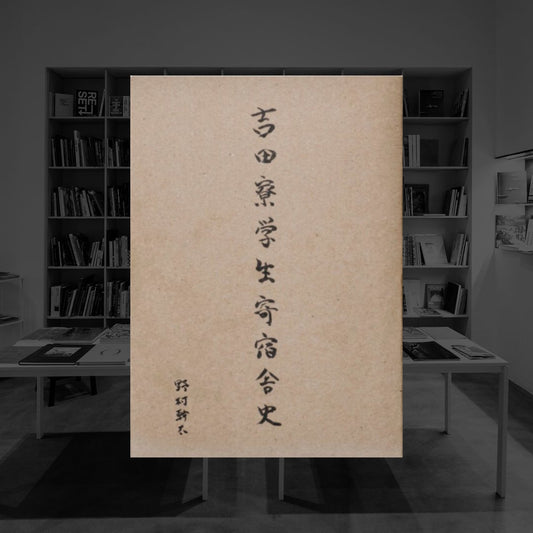 吉田寮学生寄宿舎史
野村幹太
RE
SET